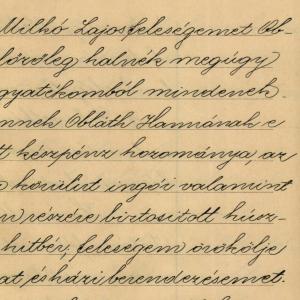 Milkó Lajosfeleségemet Ob-
lőzőleg halnék megúgy
gyatékomból mindenek
nnek Obláth Hannának e
tt készpénz hozománya, az
körülírt ingói valamint
n részére biztosított húsz-
hitbér, feleségem örökölje
at és házi berendezésemet.